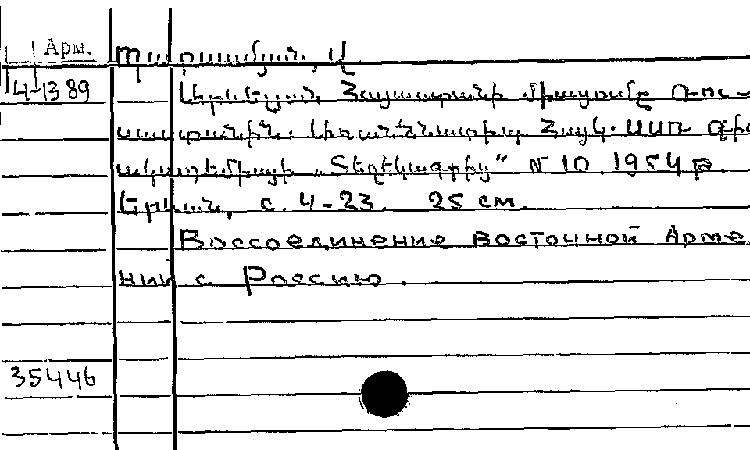 Арм. Պարսամյան, Վ
4-1389 Արևելյան Հայաստանի միացումը Ռու-
սաստանին. Հայկ. ՍՍՌ գիտ
ակադեմիայի „Տեղեկագիր" № 10. 1954 թ
Երևան, с. 4-23. 25 см.
Воссоединение восточной Арме
нии с Россию.
35446